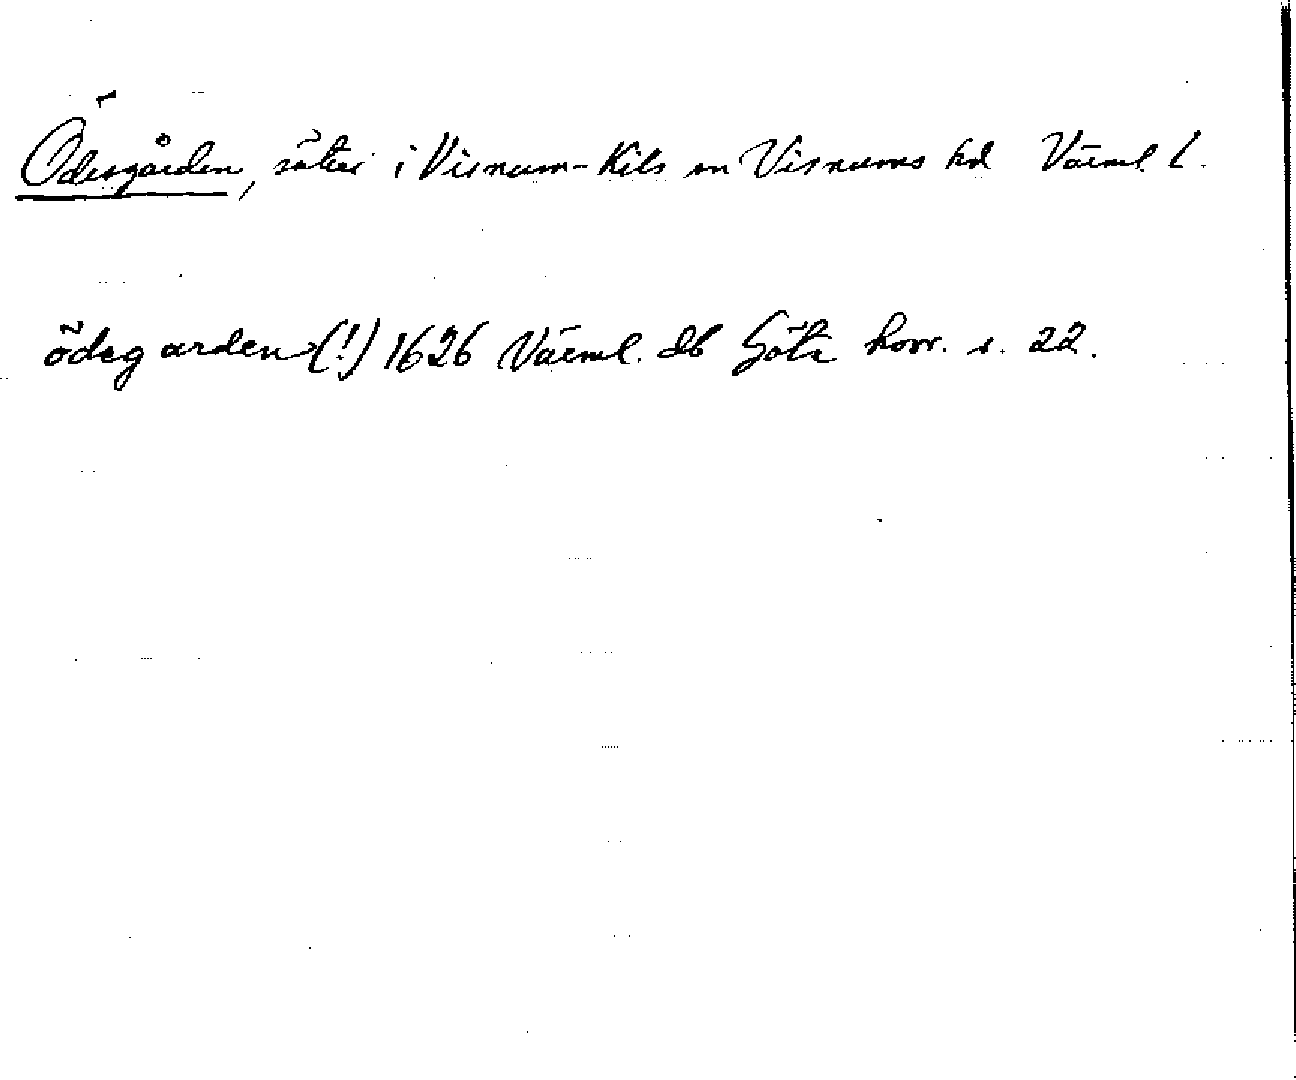 Ödesgården, säter i Visnum-Kils sn Visnums hd Värml. l.
ödegarden (!) 1626 Värml. db Göta hovr. s. 22.